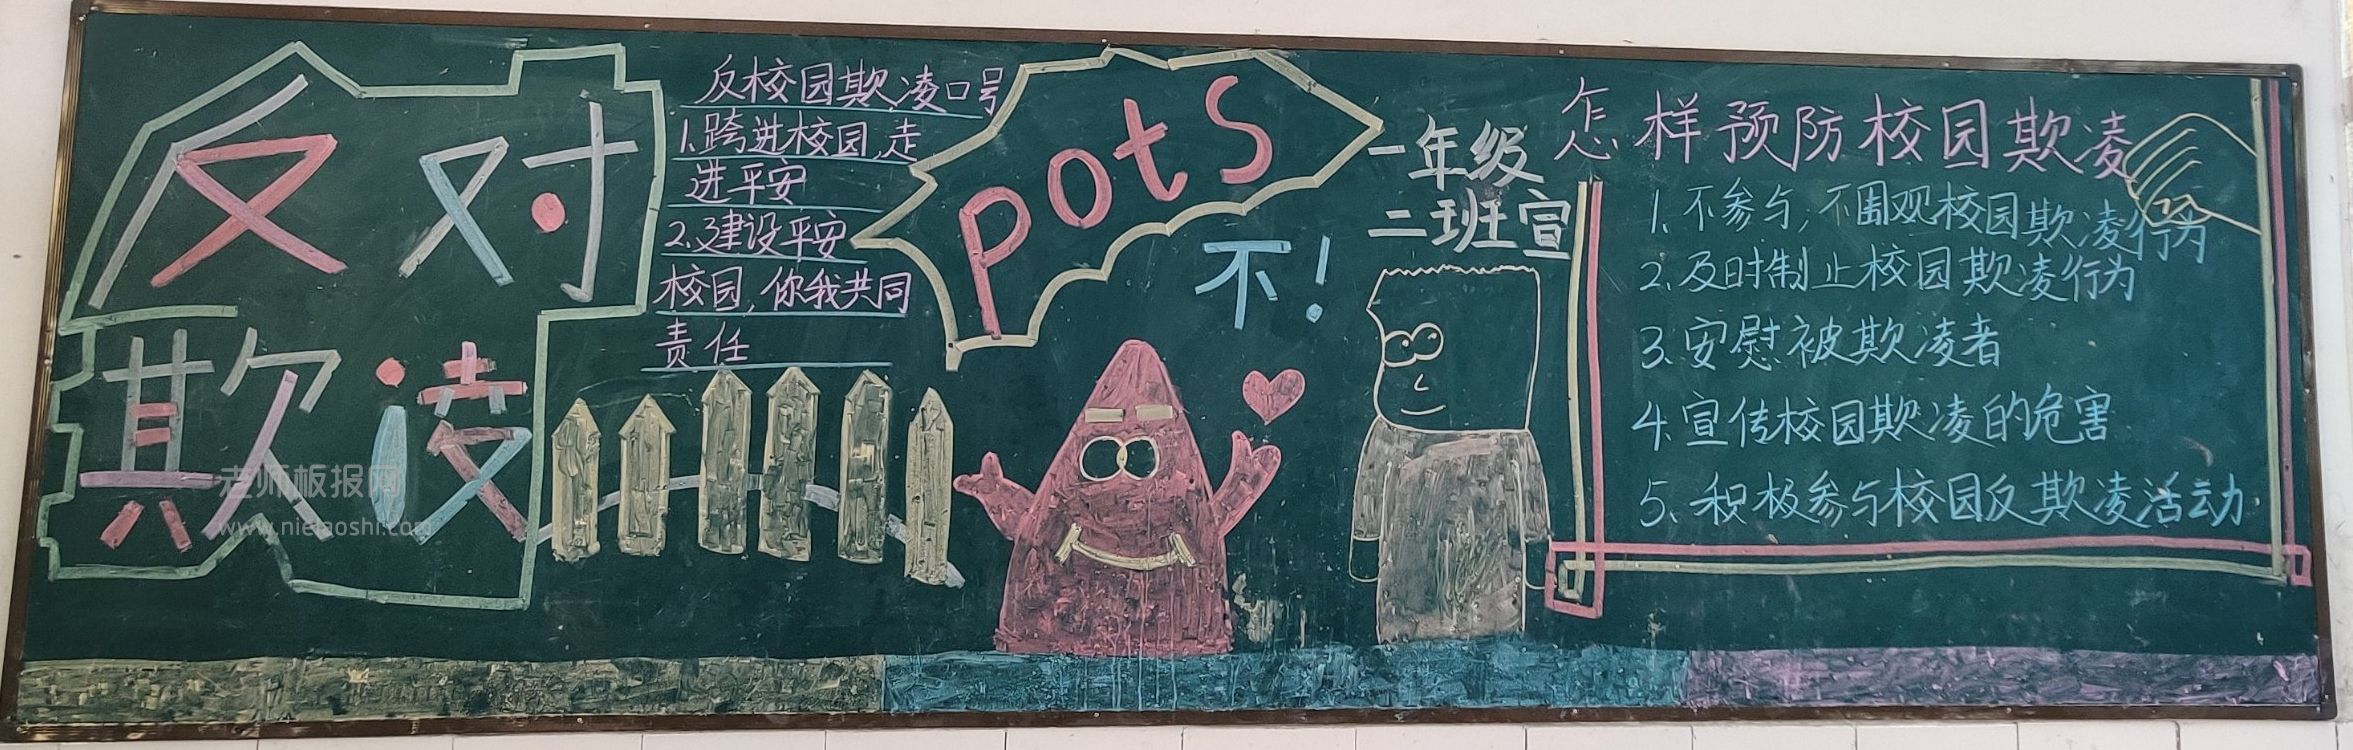 反对
欺凌
反校园欺凌口号
1.跨进校园,走
进平安
2.建设平安
校园,你我共同
责任
pots
不!
一年级
二班宣
怎样预防校园欺凌
1、不参与,不围观校园欺凌行为
2、及时制止校园欺凌行为
3、安慰被欺凌者
4、宣传校园欺凌的危害
5、积极参与校园反欺凌活动.
老师板报网
www.nielaoshi.com